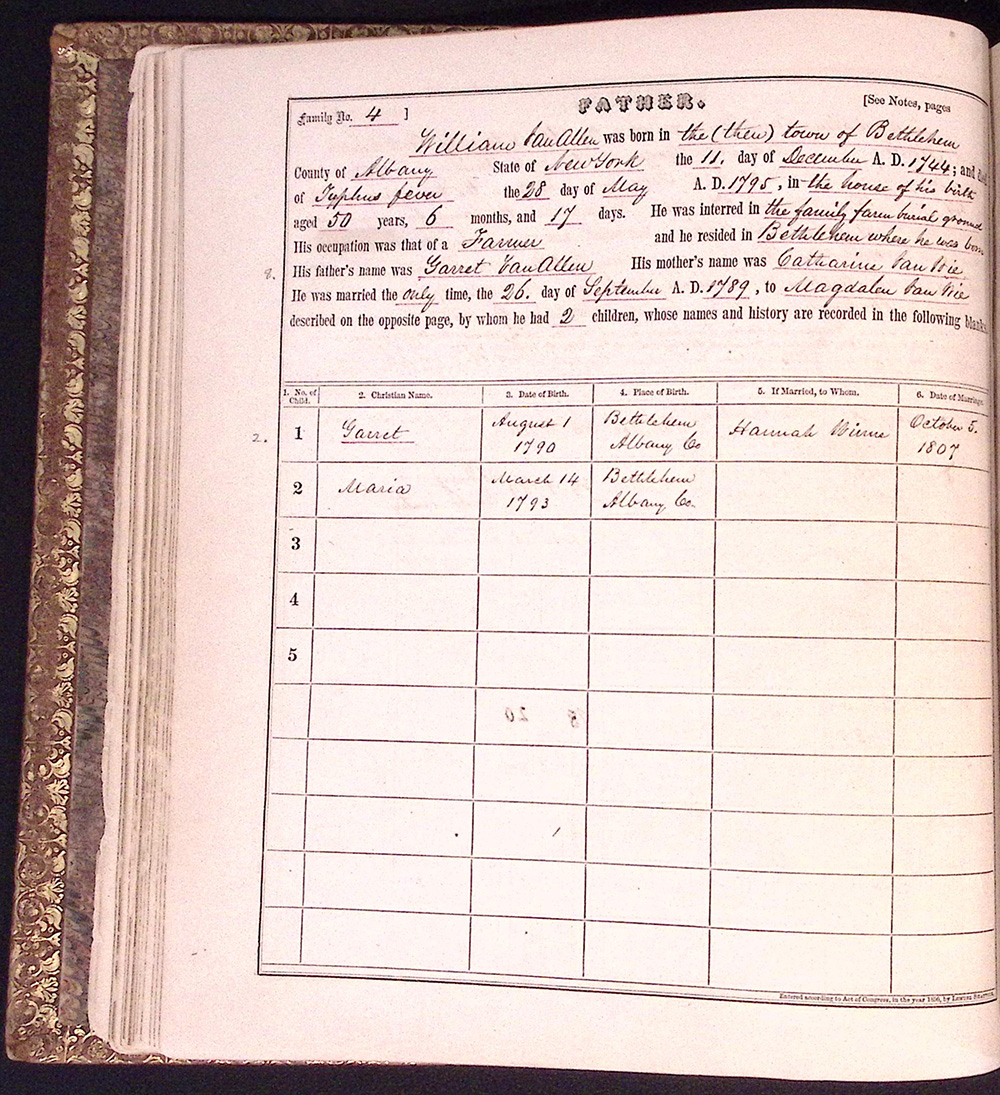 FATHER.
Family No. 4 ]
[See Notes, pages
William Van Allen was born in the (then) town of Bethlehem
County of Albany State of New York the 11. day of December A. D. 1744; and
of Typhus fever the 28 day of May A. D. 1795, in the house of his birth
aged 50 years, 6 months, and 17 days. He was interred in the family farm burial ground
His occupation was that of a Farmer and he resided in Bethlehem where he was born
8. His father's name was Garret Van Allen His mother's name was Catharine Van Wie
He was married the only time, the 26. day of September A. D. 1789, to Magdalen Van Wie
described on the opposite page, by whom he had 2 children, whose names and history are recorded in the following blanks
1. No. of Child. 2. Christian Name. 3. Date of Birth. 4. Place of Birth. 5. If Married, to Whom. 6. Date of Marriage.
2. 1 Garret August 1 1790 Bethlehem Albany Co Hannah Winne October 5. 1807
2 Maria March 14 1793 Bethlehem Albany Co.
3
4
5
Entered according to Act of Congress, in the year 1856, by